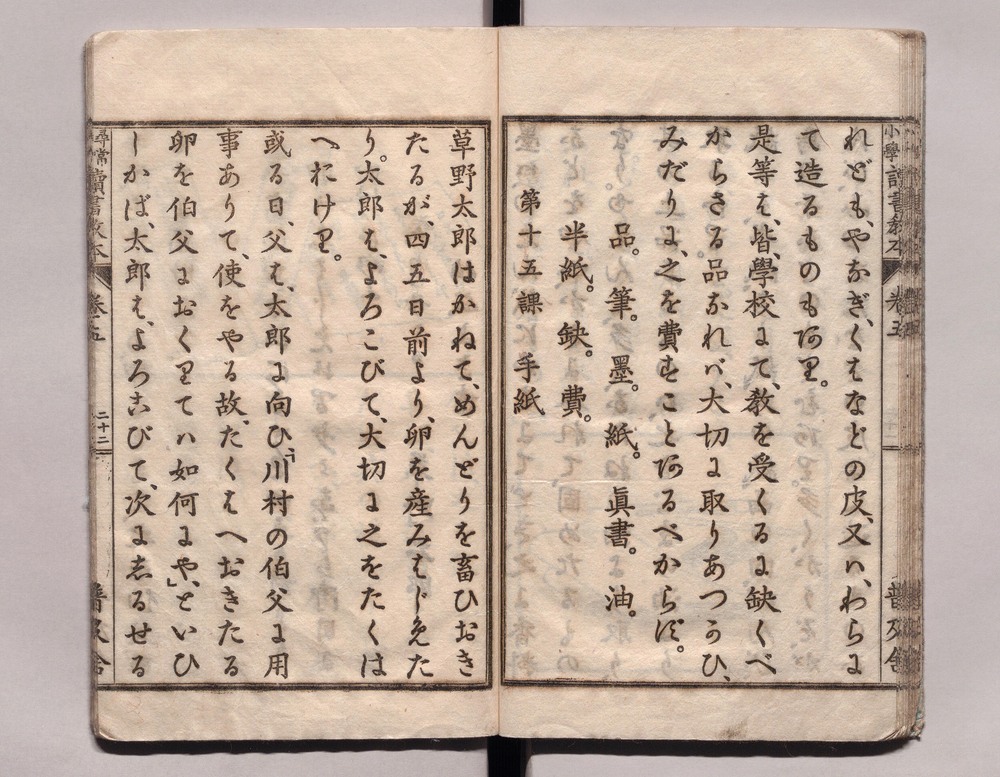 小學讀書教本 卷五 普及舍
れども、やなぎ、くはなどの皮、又ハ、わらに
て造るものもあり。
是等は、皆、學校にて、敎を受くるに缺くべ
からざる品なれバ、大切に取りあつかひ、
みだりに、之を費すことあるべからず。
品。筆。墨。紙。眞書。油。
半紙。缺。費。
第十五課 手紙
草野太郎はかねて、めんどりを畜ひおき
たるが、四五日前より、卵を産みはじめた
り。太郎は、よろこびて、大切に之をたくは
へおけり。
或る日、父は、太郎に向ひ「川村の伯父に用
事ありて、使をやる故、たくはへおきたる
卵を伯父におくりてハ如何にや、」といひ
しかば、太郎は、よろこびて、次にしるせる
尋常讀書教本 卷五 二十二 普及舍